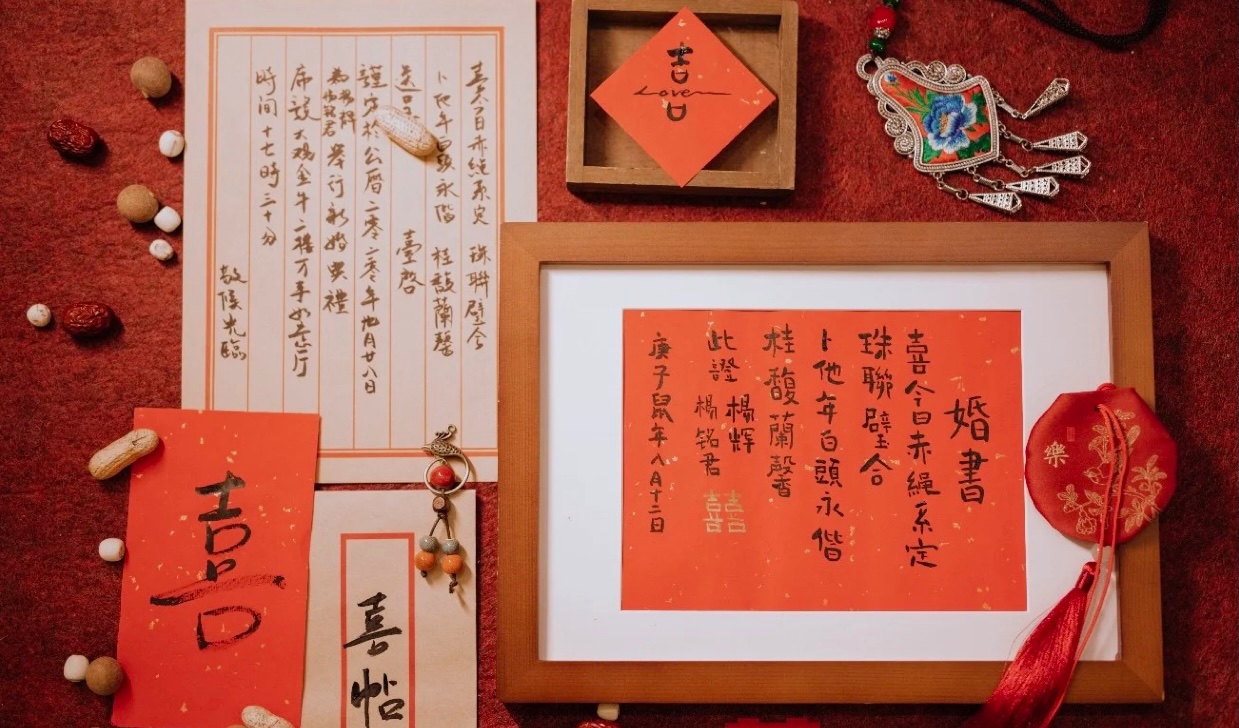 喜今日赤繩系定 珠聯璧合
卜他年白頭永偕 桂馥蘭馨
送呈 臺啓
謹定於公曆二零二零年九月廿八日
舉行新婚典禮
席設大 金牛二樓万事如意厅
時間十七時三十分
敬候光臨
吉
Love
口
婚書
喜今日赤繩系定
珠聯璧合
卜他年白頭永偕
桂馥蘭馨
此證 楊辉
楊铭君
囍
庚子鼠年八月十二日
樂
喜
喜帖